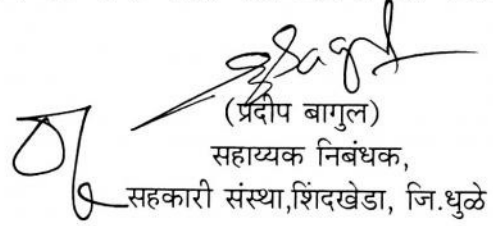 (प्रदीप बागुल)
सहाय्यक निबंधक,
सहकारी संस्था,शिंदखेडा, जि.धुळे